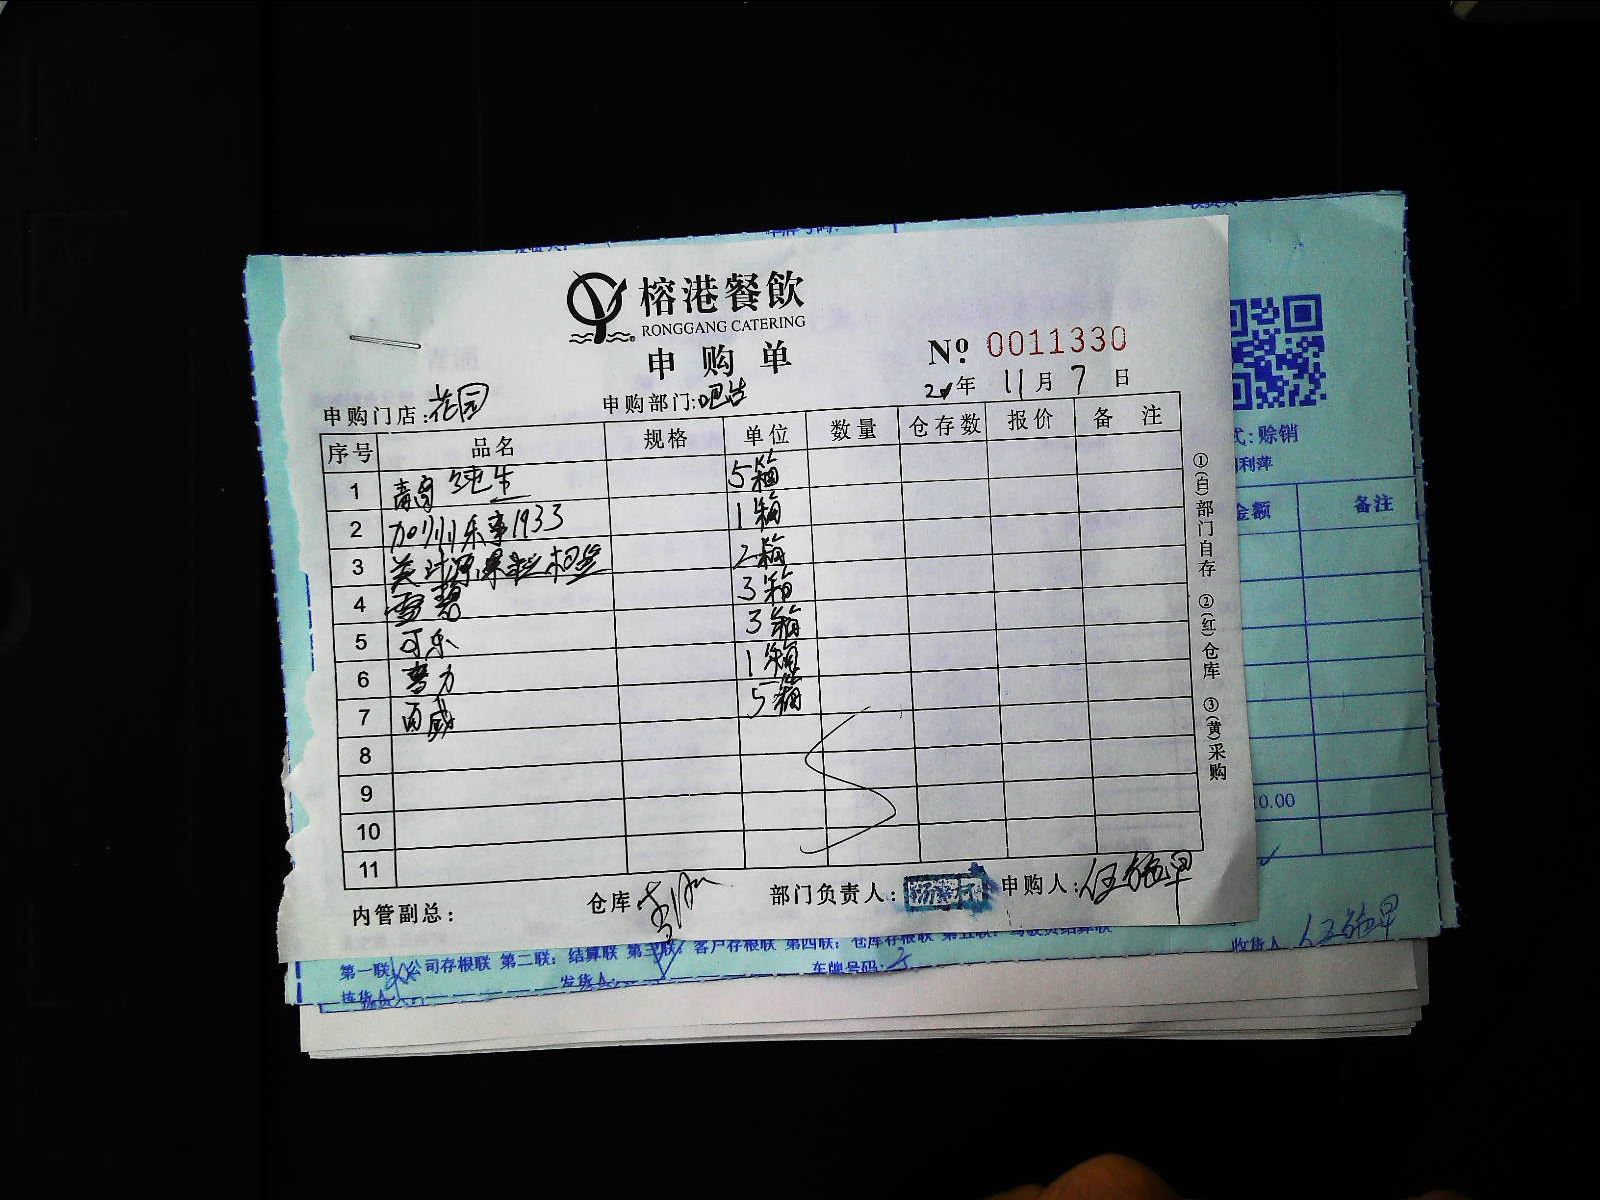 榕港餐飲
RONGGANG CATERING
申购单
№ 0011330
年 11月 7日
申购门店:花园 申购部门:吧台
序号 品名 规格 单位 数量 仓存数 报价 备注
1 青岛纯生 5箱
2 加州乐事1933 1箱
3 美汁源果粒橙 2箱
4 雪碧 3箱
5 可乐 3箱
6 1箱
7 百威 5箱
8
9
10
11
内管副总: 仓库: 部门负责人: 申购人:
①(白)部门自存 ②(红)仓库 ③(黄)采购
式:赊销
利萍
金额 备注
0.00
第一联:公司存根联 第二联:结算联 第三联:客户存根联 第四联:仓库存根联
发货人: 车牌号码: 收货人